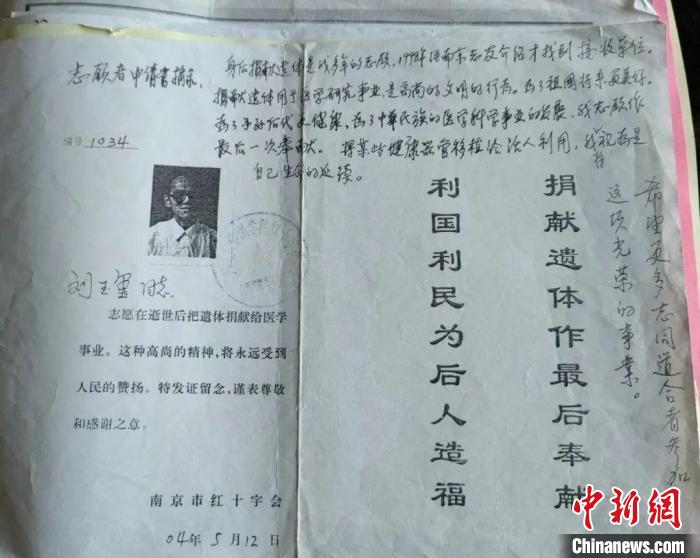 志愿者申请书摘录
身后捐献遗体是我多年的志愿，1998年经南京志友介绍才找到接收单位。
捐献遗体用于医学研究事业，是高尚的文明的行为。为了祖国将来更美好。
为了子孙后代更健康，为了中华民族的医学科学事业的发展，我志愿作
最后一次奉献。将某些健康器官移植给活人利用，我视为是
自己生命的延续。
希望更多志同道合者参加
这项光荣的事业。
编号 1034
刘玉玺同志
志愿在逝世后把遗体捐献给医学
事业。这种高尚的精神，将永远受到
人民的赞扬。特发证留念，谨表尊敬
和感谢之意。
南京市红十字会
04年5月12日
捐献遗体作最后奉献
利国利民为后人造福
中新网
Chinanews.com